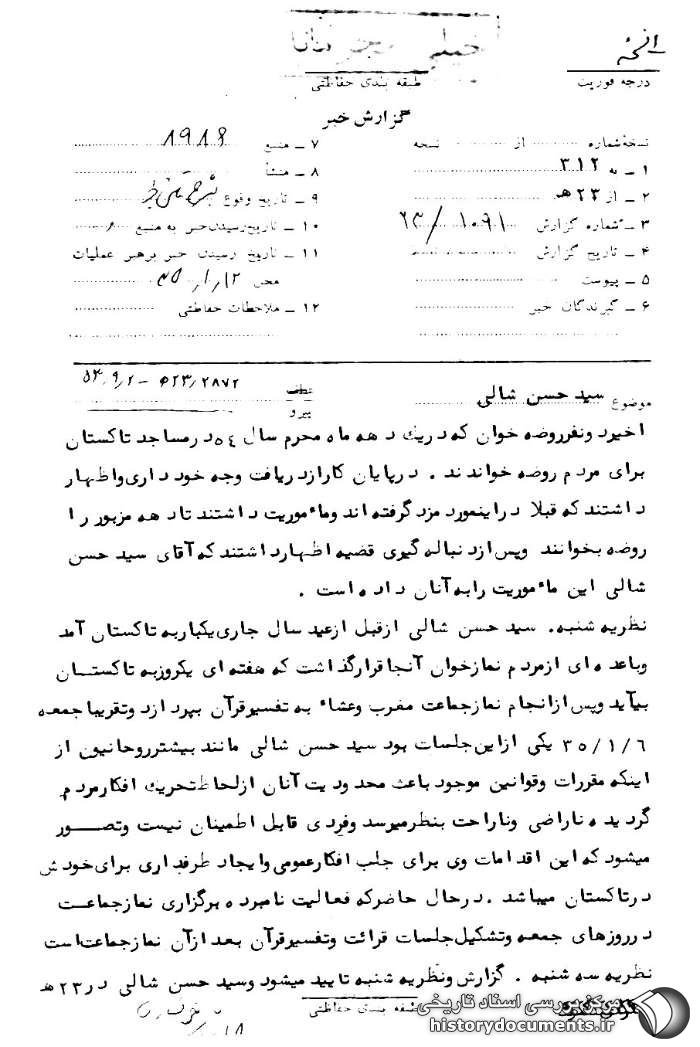 خیلی محرمانه
طبقه بندی حفاظتی
درجه فوریت
گزارش خبر
نسخهٔ شماره ........ از ........ نسخه
۱ ـ به ۳۱۲
۲ ـ از ۲۳ هـ
۳ ـ شماره گزارش ۶۳/۱۰۹۱
۴ ـ تاریخ گزارش
۵ ـ پیوست
۶ ـ گیرندگان خبر
۷ ـ منبع ۸۹۸۸
۸ ـ منشأ
۹ ـ تاریخ وقوع
۱۰ ـ تاریخ رسیدن خبر به منبع
۱۱ ـ تاریخ رسیدن خبر برهبر عملیات
محل ۳۵/۱/۱۲
۱۲ ـ ملاحظات حفاظتی
موضوع سید حسن شالی
عطف
پیرو
۲۸۷۲/۵۲۳ - ۵۴/۹/۲
اخیرا دونفرروضه خوان که دریك دهه ماه محرم سال ٥٤ درمساجد تاکستان
برای مردم روضه خواندند . درپایان کارازدریافت وجه خود داری واظهار
داشتند که قبلا دراینمورد مزد گرفته اند وماٴموریت داشتند تادهه مزبور را
روضه بخوانند وپس ازدنباله گیری قضیه اظهارداشتند که آقای سید حسن
شالی این ماٴموریت رابه آنان داده است .
نظریه شنبه. سید حسن شالی ازقبل ازعید سال جاری یکباربه تاکستان آمد
وباعده ای ازمردم نمازخوان آنجا قرارگذاشت که هفته ای یکروزبه تاکستان
بیآید وپس ازانجام نمازجماعت مغرب وعشاء به تفسیرقرآن بپردازد وتقریبا جمعه
۳٥/۱/٦ یکی ازاین جلسات بود سید حسن شالی مانند بیشترروحانیون از
اینکه مقررات وقوانین موجود باعث محدودیت آنان ازلحاظ تحریك افکارمردم
گردیده ناراضی وناراحت بنظرمیرسد وفردی قابل اطمینان نیست وتصور
میشود که این اقدامات وی برای جلب افکارعمومی وایجاد طرفداری برای خودش
درتاکستان میباشد .درحال حاضرکه فعالیت نامبرده برگزاری نمازجماعت
درروزهای جمعه وتشکیل جلسات قرائت وتفسیرقرآن بعدازآن نمازجماعت است
نظریه سه شنبه . گزارش ونظریه شنبه تایید میشود وسید حسن شالی در ۲۳ هـ
طبقه بندی حفاظتی
مرکز بررسی اسناد تاریخی
historydocuments.ir